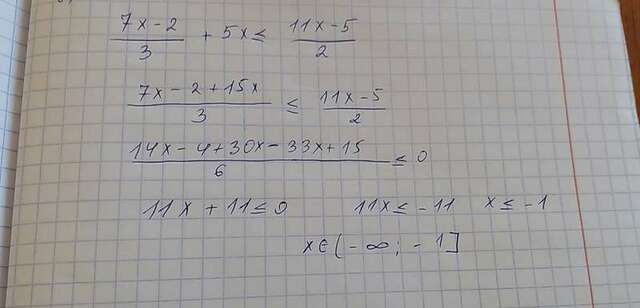 (7x - 2)/3 + 5x ≤ (11x - 5)/2
(7x - 2 + 15x)/3 ≤ (11x - 5)/2
(14x - 4 + 30x - 33x + 15)/6 ≤ 0
11x + 11 ≤ 0 11x ≤ -11 x ≤ -1
x ∈ (-∞; -1]